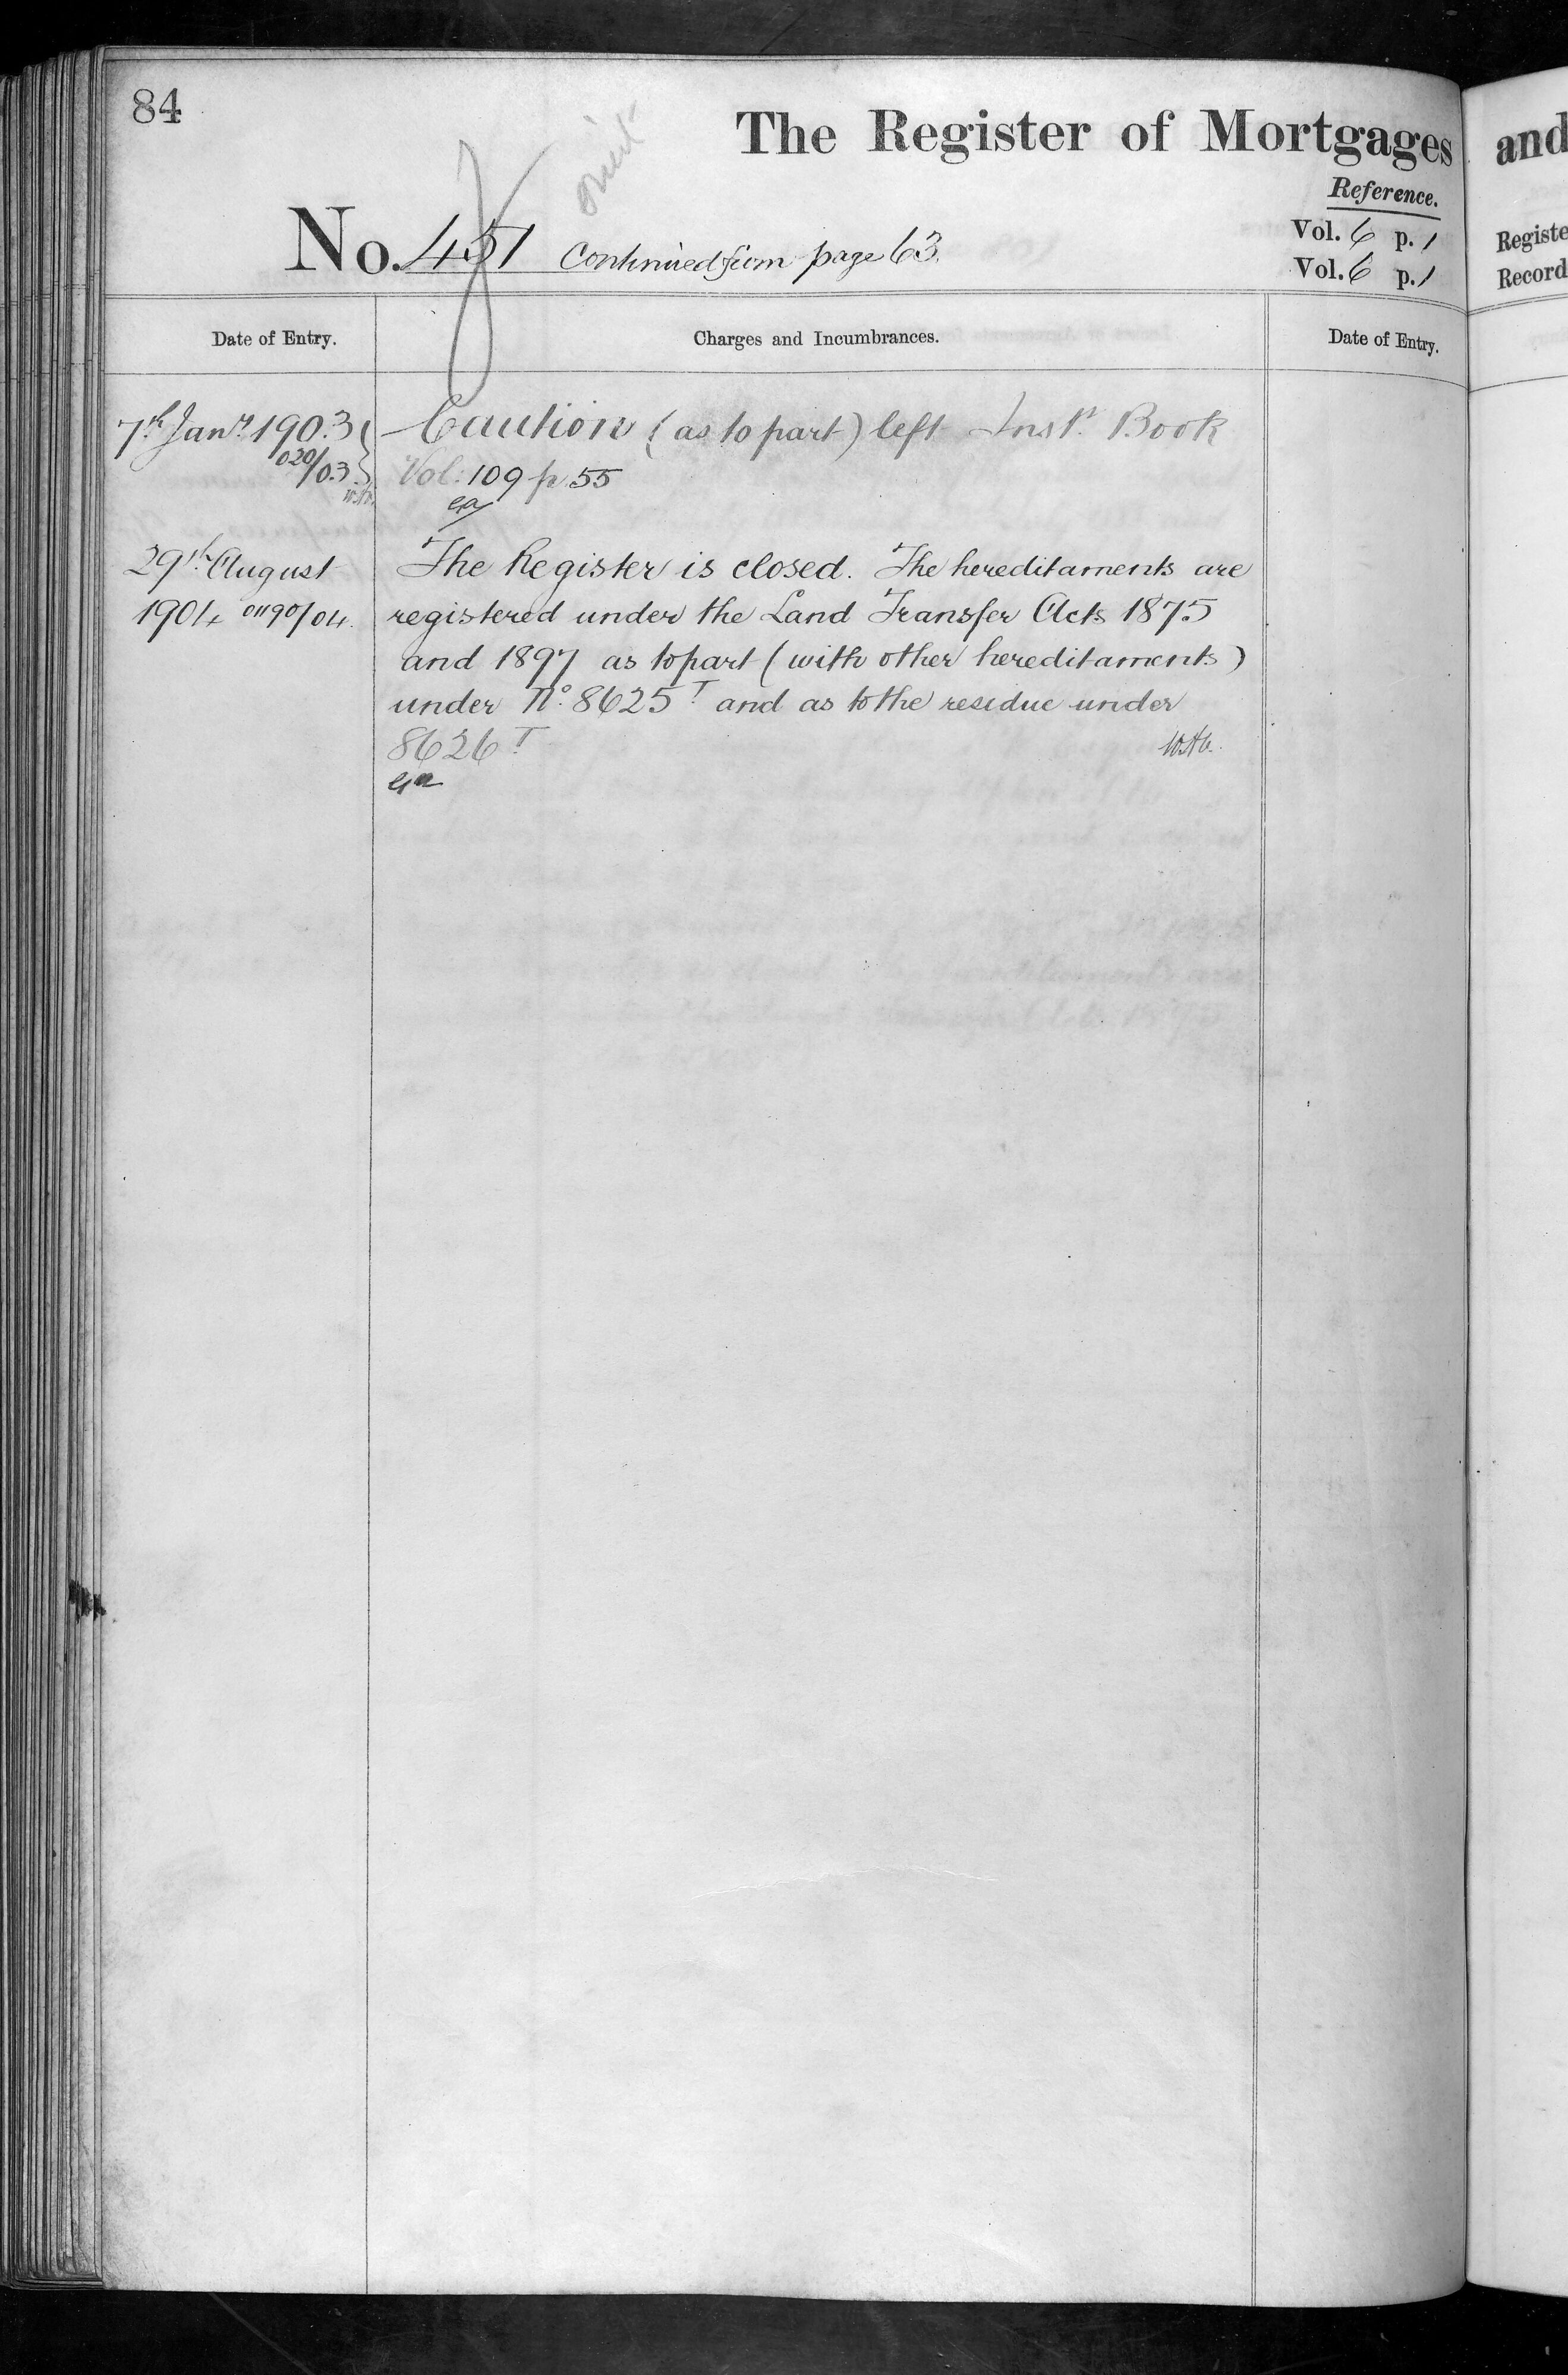 84
The Register of Mortgages
and
omit
Reference.
No. 451 Continued from page 63.
Vol. 6 p. 1
Vol. 6 p. 1
Registe
Record
Date of Entry.
Charges and Incumbrances.
Date of Entry.
7th Jany. 1903
020/03
Caution (as to part) left Inst. Book
Vol: 109 p. 55
29th August
1904 01190/04.
The Register is closed. The hereditaments are
registered under the Land Transfer Acts 1875
and 1897 as to part (with other hereditaments)
under No. 8625 T and as to the residue under
8626 T